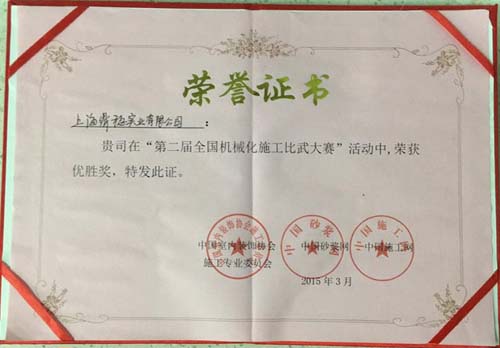 荣誉证书
上海舜福实业有限公司：
贵司在“第二届全国机械化施工比武大赛”活动中,荣获
优胜奖，特发此证。
中国室内装饰协会 中国砂浆网 中国施工网
施工专业委员会
2015年3月
中国砂浆网
中国施工网